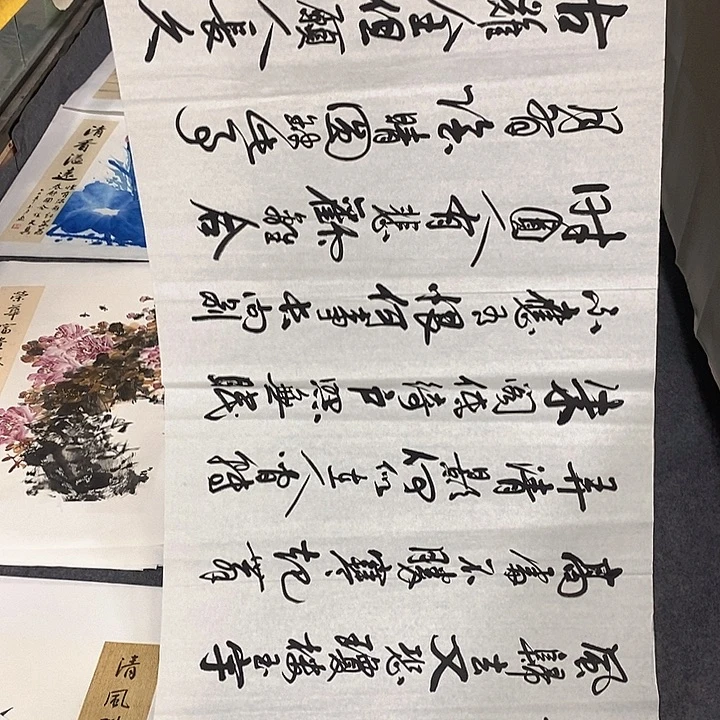 風歸去又恐瓊樓玉宇
高處不勝寒起舞
弄清影何似在人間轉
朱閣低綺戶照無眠
不應有恨何事長向別
時圓人有悲歡離合
月有陰晴圓缺此事
古難全但願人長久
清香溢遠
榮華富貴
清風